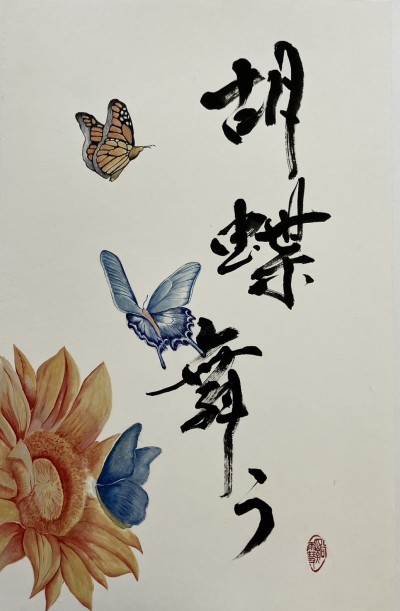 胡蝶舞う